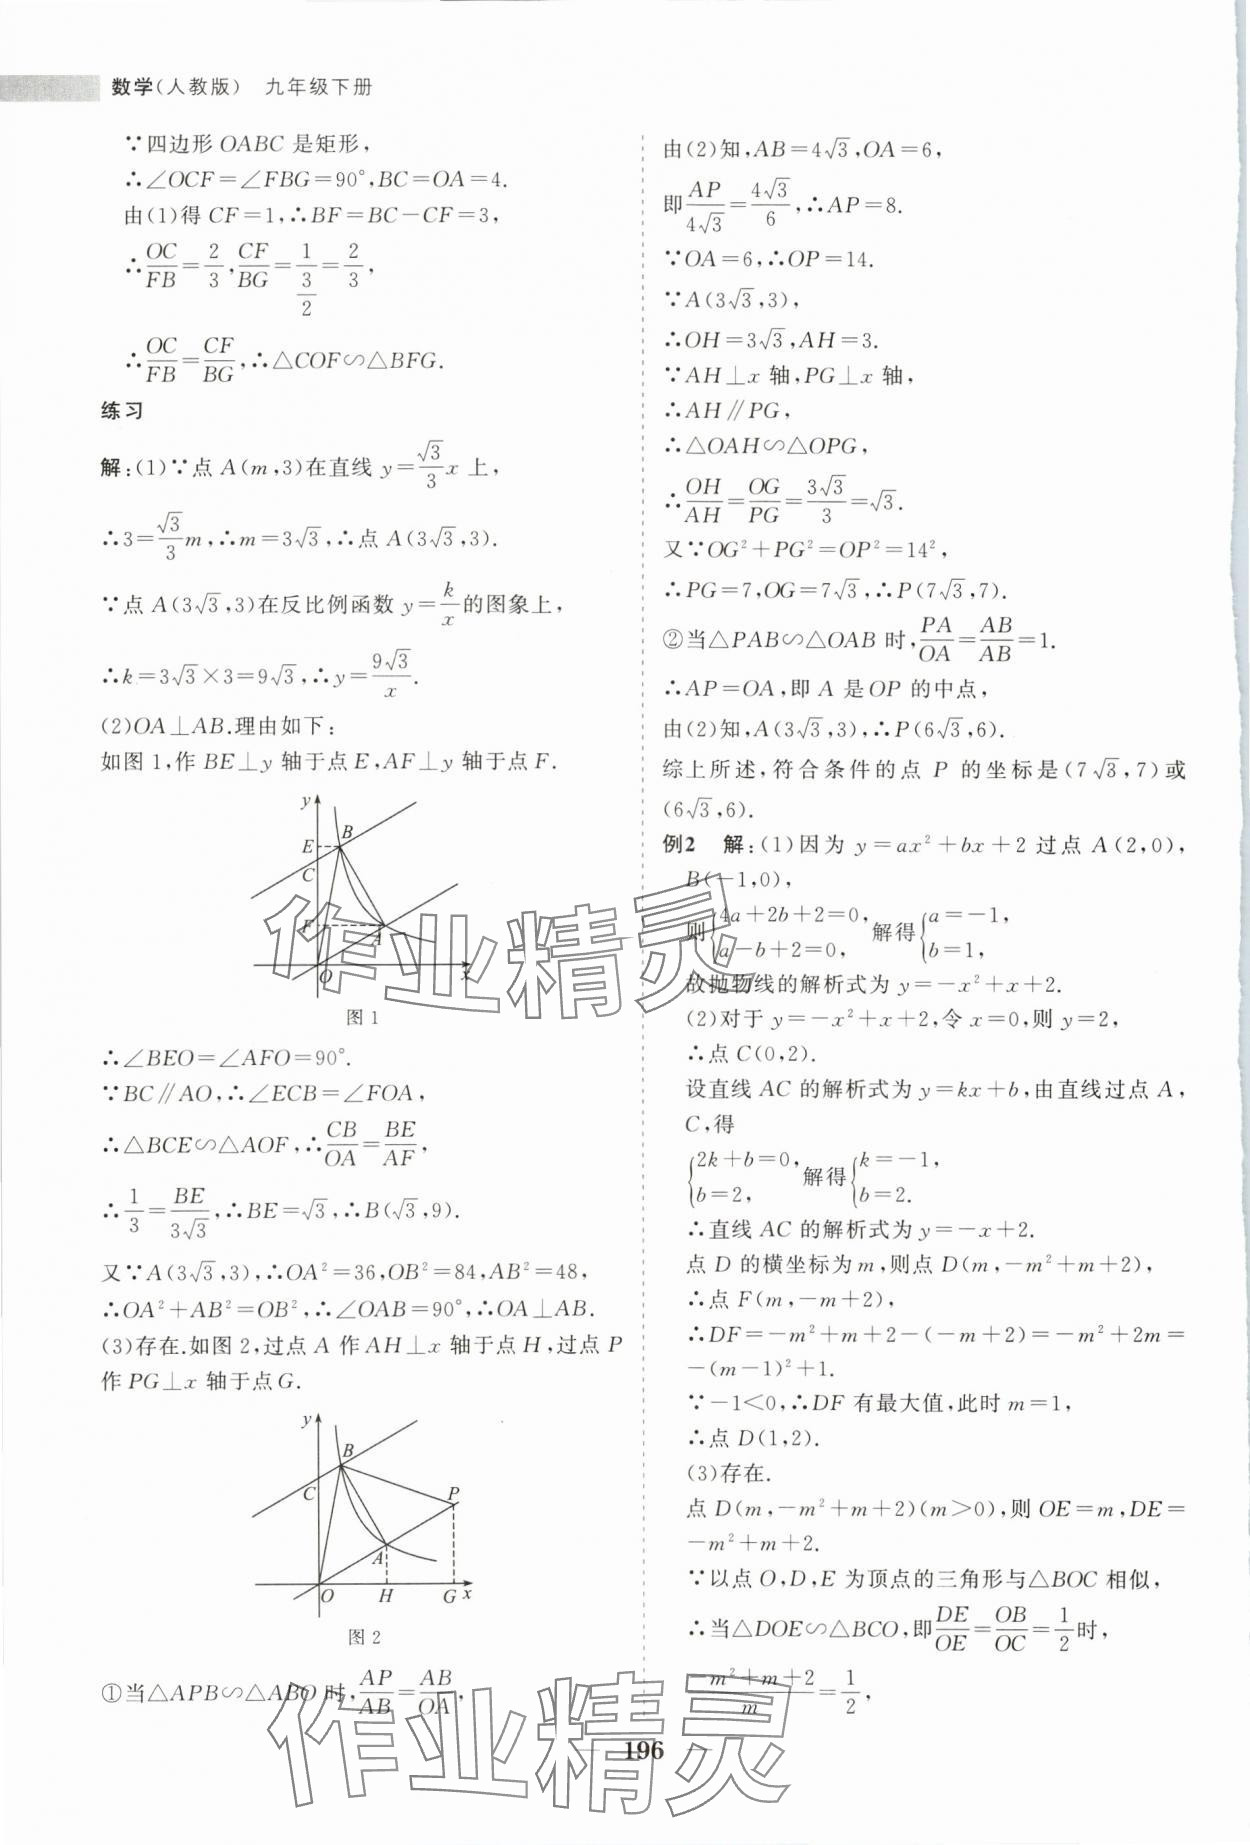 数学(人教版) 九年级下册
∵四边形 OABC 是矩形,
∴∠OCF=∠FBG=90°,BC=OA=4.
由(1)得 CF=1,∴BF=BC-CF=3,
∴OC/FB=2/3,CF/BG=1/(3/2)=2/3,
∴OC/FB=CF/BG,∴△COF∽△BFG.
练习
解:(1)∵点 A(m,3)在直线 y=√3/3 x 上,
∴3=√3/3 m,∴m=3√3,∴点 A(3√3,3).
∵点 A(3√3,3)在反比例函数 y=k/x 的图象上,
∴k=3√3×3=9√3,∴y=9√3/x.
(2)OA⊥AB.理由如下:
如图 1,作 BE⊥y 轴于点 E,AF⊥y 轴于点 F.
y
B
E
C
F
A
O
x
图 1
∴∠BEO=∠AFO=90°.
∵BC∥AO,∴∠ECB=∠FOA,
∴△BCE∽△AOF,∴CB/OA=BE/AF,
∴1/3=BE/3√3,∴BE=√3,∴B(√3,9).
又∵A(3√3,3),∴OA²=36,OB²=84,AB²=48,
∴OA²+AB²=OB²,∴∠OAB=90°,∴OA⊥AB.
(3)存在.如图 2,过点 A 作 AH⊥x 轴于点 H,过点 P
作 PG⊥x 轴于点 G.
y
B
C
P
A
O
H
G
x
图 2
①当△APB∽△ABO 时,AP/AB=AB/OA,
由(2)知,AB=4√3,OA=6,
即AP/4√3=4√3/6,∴AP=8.
∵OA=6,∴OP=14.
∵A(3√3,3),
∴OH=3√3,AH=3.
∵AH⊥x 轴,PG⊥x 轴,
∴AH∥PG,
∴△OAH∽△OPG,
∴OH/AH=OG/PG=3√3/3=√3.
又∵OG²+PG²=OP²=14²,
∴PG=7,OG=7√3,∴P(7√3,7).
②当△PAB∽△OAB 时,PA/OA=AB/AB=1.
∴AP=OA,即 A 是 OP 的中点,
由(2)知,A(3√3,3),∴P(6√3,6).
综上所述,符合条件的点 P 的坐标是(7√3,7)或
(6√3,6).
例2 解:(1)因为 y=ax²+bx+2 过点 A(2,0),
B(-1,0),
则{4a+2b+2=0, a-b+2=0. 解得{a=-1, b=1,
故抛物线的解析式为 y=-x²+x+2.
(2)对于 y=-x²+x+2,令 x=0,则 y=2,
∴点 C(0,2).
设直线 AC 的解析式为 y=kx+b,由直线过点 A,
C,得
{2k+b=0, b=2, 解得{k=-1, b=2.
∴直线 AC 的解析式为 y=-x+2.
点 D 的横坐标为 m,则点 D(m,-m²+m+2),
∴点 F(m,-m+2),
∴DF=-m²+m+2-(-m+2)=-m²+2m=
-(m-1)²+1.
∵-1<0,∴DF 有最大值,此时 m=1,
∴点 D(1,2).
(3)存在.
点 D(m,-m²+m+2)(m>0),则 OE=m,DE=
-m²+m+2.
∵以点 O,D,E 为顶点的三角形与△BOC 相似,
∴当△DOE∽△BCO,即DE/OE=OB/OC=1/2时,
(-m²+m+2)/m=1/2,
196
作业精灵
作业精灵